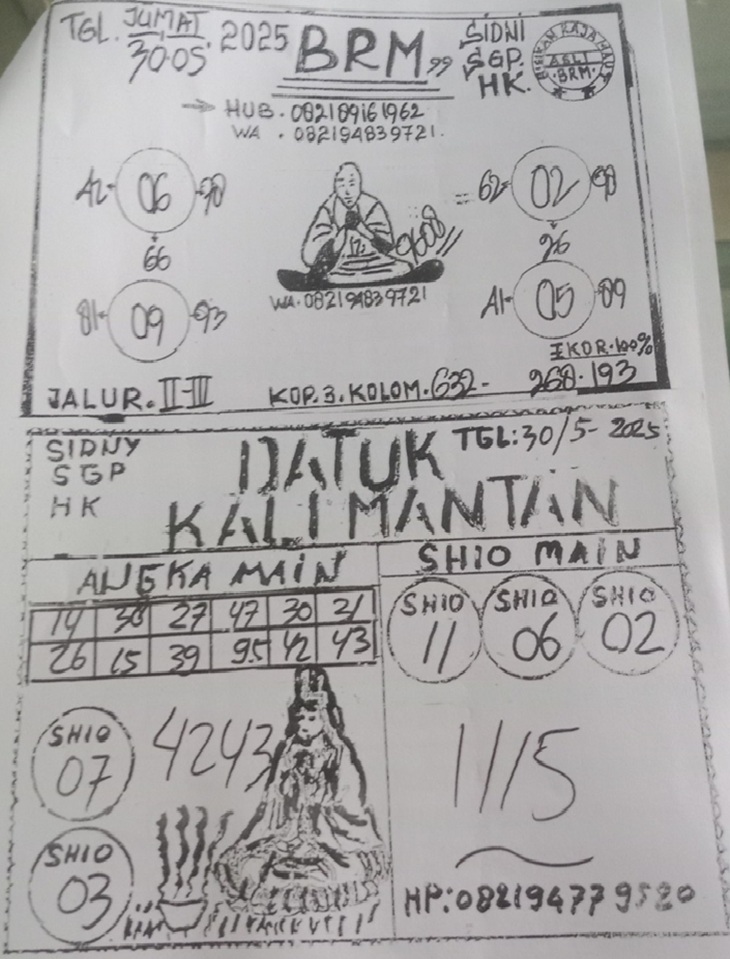 TGL. JUMAT
30-05 2025
BRM
SIDNI
SGP.
HK.
ASLI
BRM
HUB. 082189161962
WA. 082194839721.
42- 06 -90
66
81- 09 -93
9608
WA. 082194839721
= 62- 02 -90
26
A1- 05 -89
EKOR. 100%
JALUR. II-III
KOP. 3. KOLOM. 632- 268. 193
SIDNY
SGP
HK
DATUK
KALIMANTAN
TGL: 30/5- 2025
ANGKA MAIN
14 38 27 47 30 21
26 15 39 95 42 43
SHIO MAIN
SHIO
11
SHIO
06
SHIO
02
SHIO
07
4243
SHIO
03
1115
HP: 082194779580